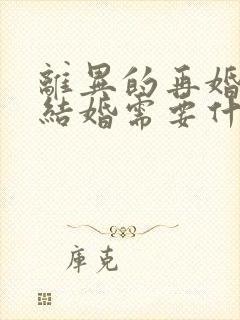 離異的再婚
結婚需要什
库克